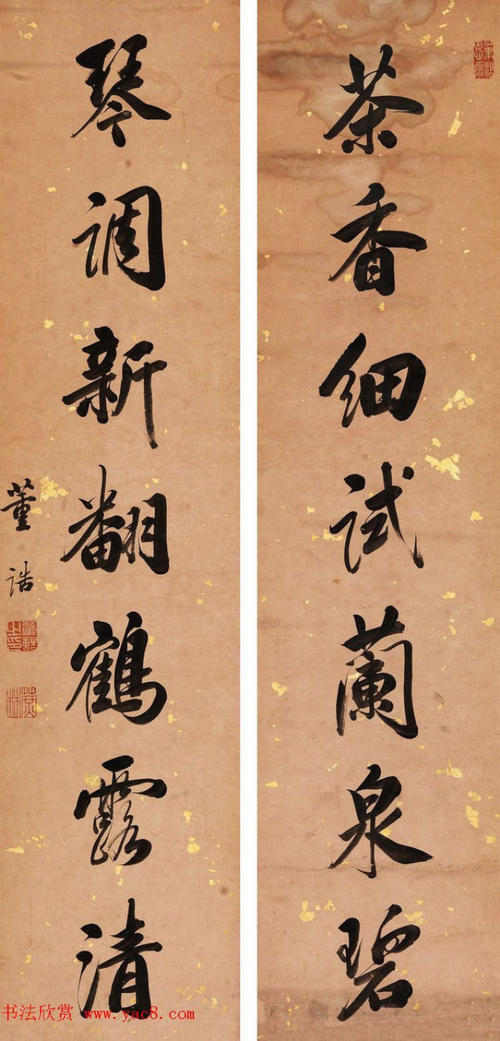 茶香细試蘭泉碧
琴调新翻鶴露清
董誥
书法欣赏 www.yac8.com